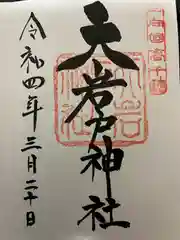 天岩戸神社
令和四年三月二十日